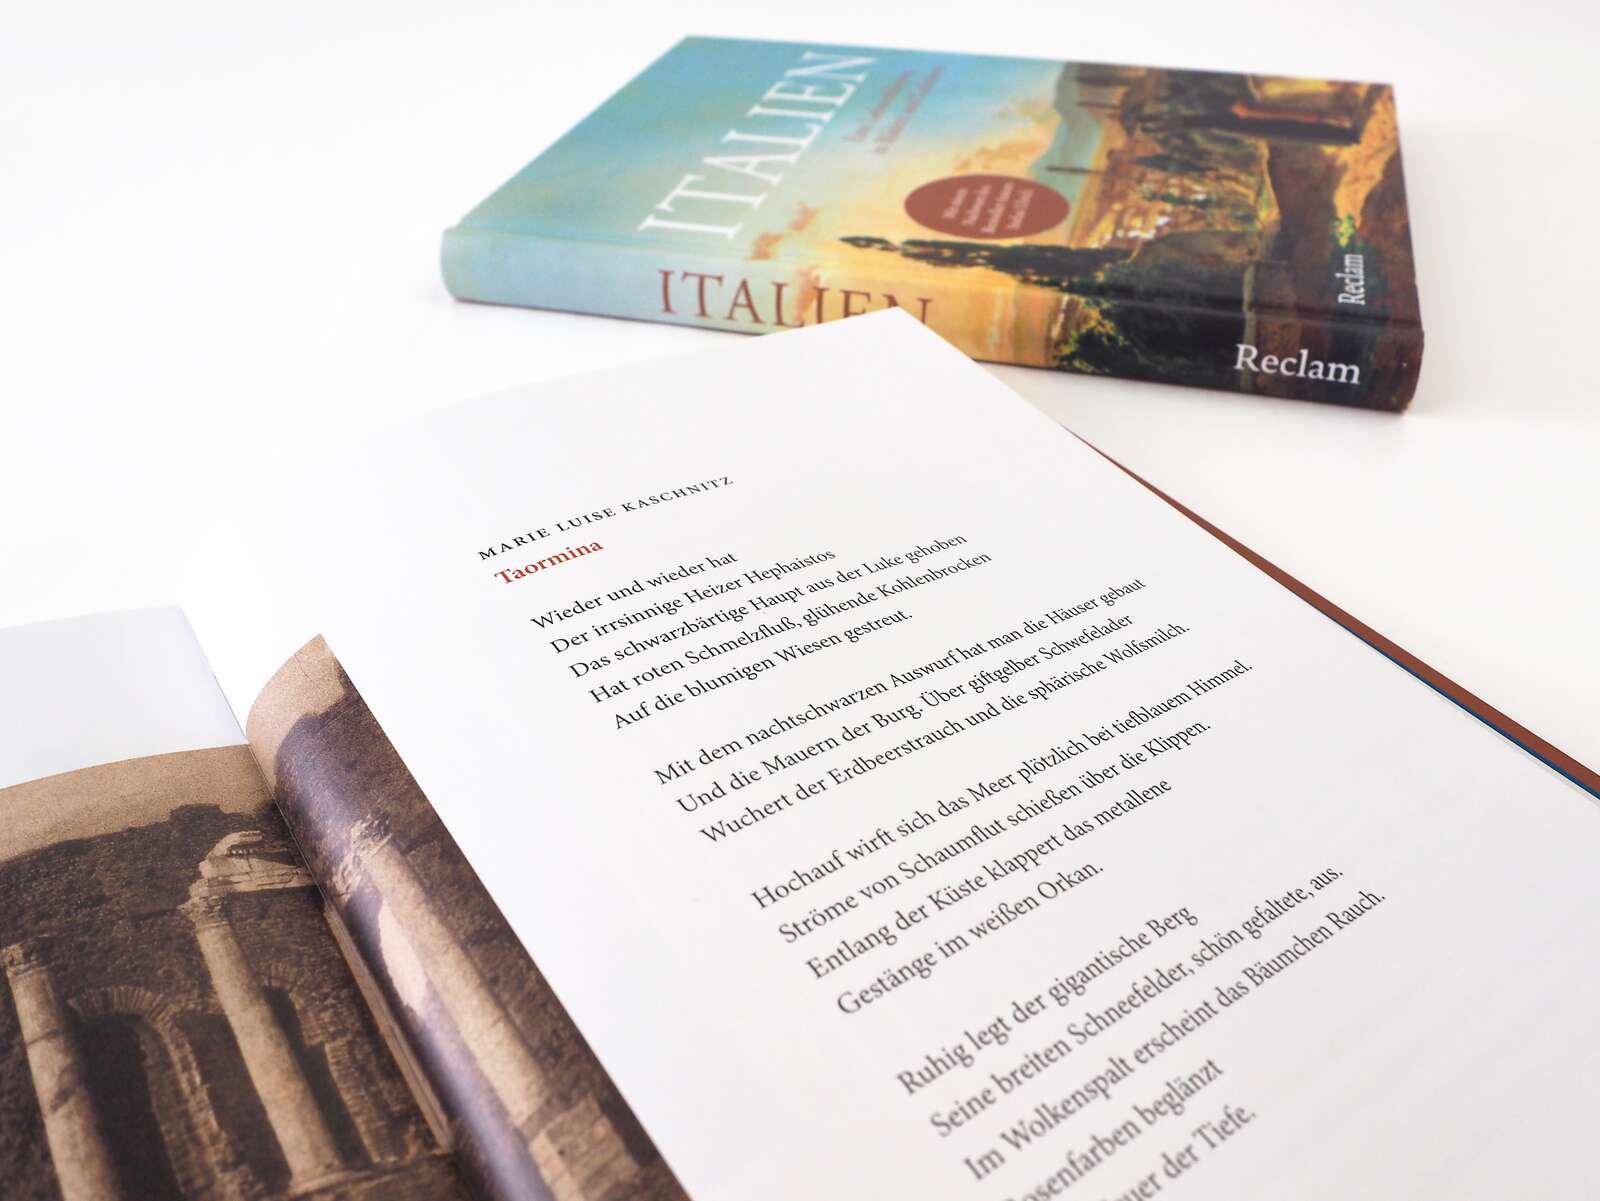 ITALIEN
ITALIEN
Reclam
Reclam
MARIE LUISE KASCHNITZ
Taormina
Wieder und wieder hat
Der irrsinnige Heizer Hephaistos
Das schwarzbärtige Haupt aus der Luke gehoben
Hat roten Schmelzfluß, glühende Kohlenbrocken
Auf die blumigen Wiesen gestreut.
Mit dem nachtschwarzen Auswurf hat man die Häuser gebaut
Und die Mauern der Burg. Über giftgelber Schwefelader
Wuchert der Erdbeerstrauch und die sphärische Wolfsmilch.
Hochauf wirft sich das Meer plötzlich bei tiefblauem Himmel.
Ströme von Schaumflut schießen über die Klippen.
Entlang der Küste klappert das metallene
Gestänge im weißen Orkan.
Ruhig legt der gigantische Berg
Seine breiten Schneefelder, schön gefaltete, aus.
Im Wolkenspalt erscheint das Bäumchen Rauch.
osenfarben beglänzt
euer der Tiefe.